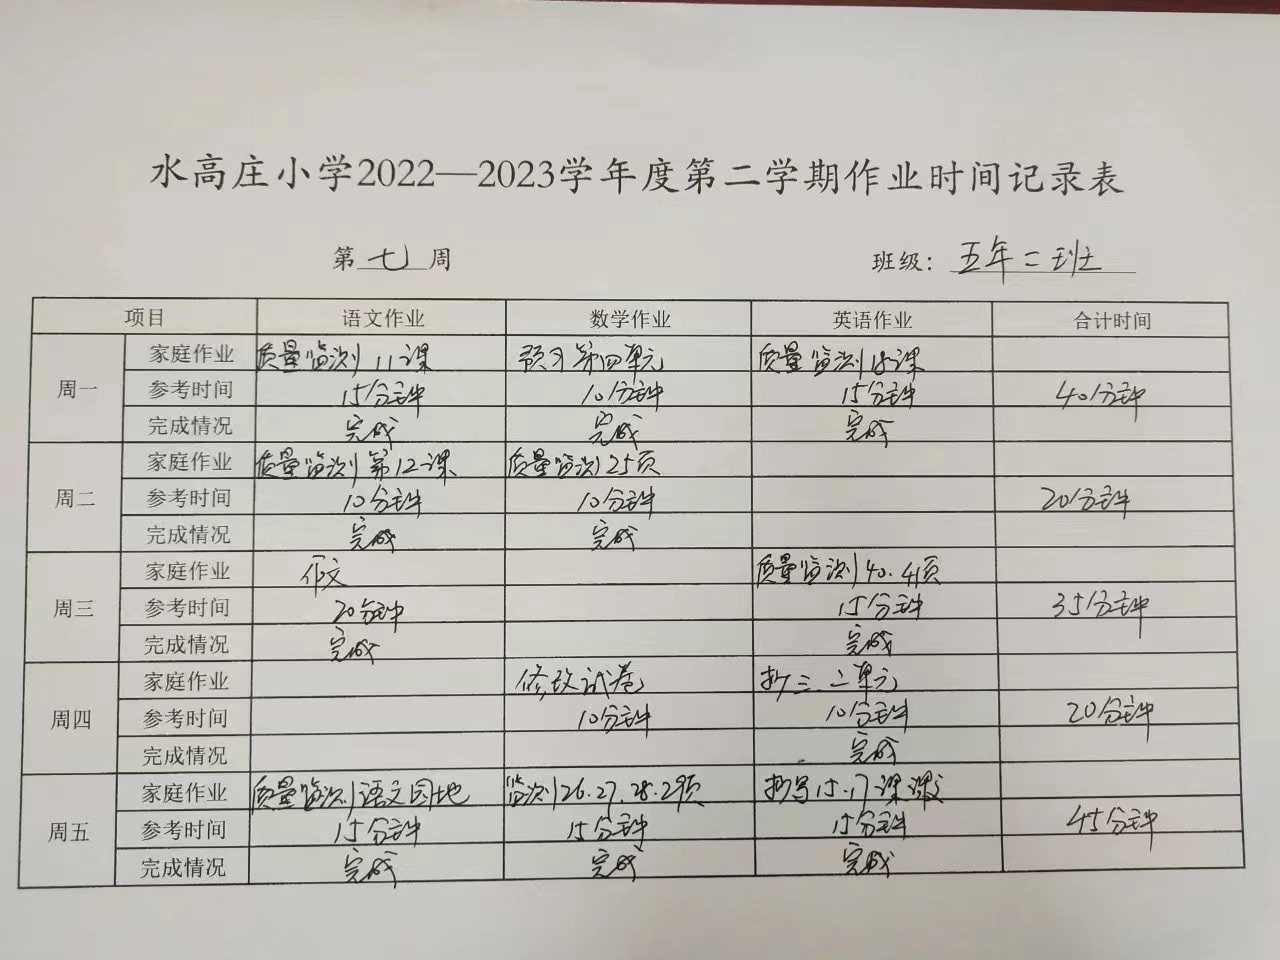 水高庄小学2022—2023学年度第二学期作业时间记录表
第 七 周 班级：五年二班
项目 语文作业 数学作业 英语作业 合计时间
周一
家庭作业 质量监测11课 预习第四单元 质量监测18课
参考时间 15分钟 10分钟 15分钟 40分钟
完成情况 完成 完成 完成
周二
家庭作业 质量监测第12课 质量监测25页
参考时间 10分钟 10分钟 20分钟
完成情况 完成 完成
周三
家庭作业 作文 质量监测40.41页
参考时间 20分钟 15分钟 35分钟
完成情况 完成 完成
周四
家庭作业 修改试卷 抄三.二单元
参考时间 10分钟 10分钟 20分钟
完成情况 完成
周五
家庭作业 质量监测语文园地 监测26.27.28.29页 抄写15.17课课文
参考时间 15分钟 15分钟 15分钟 45分钟
完成情况 完成 完成 完成